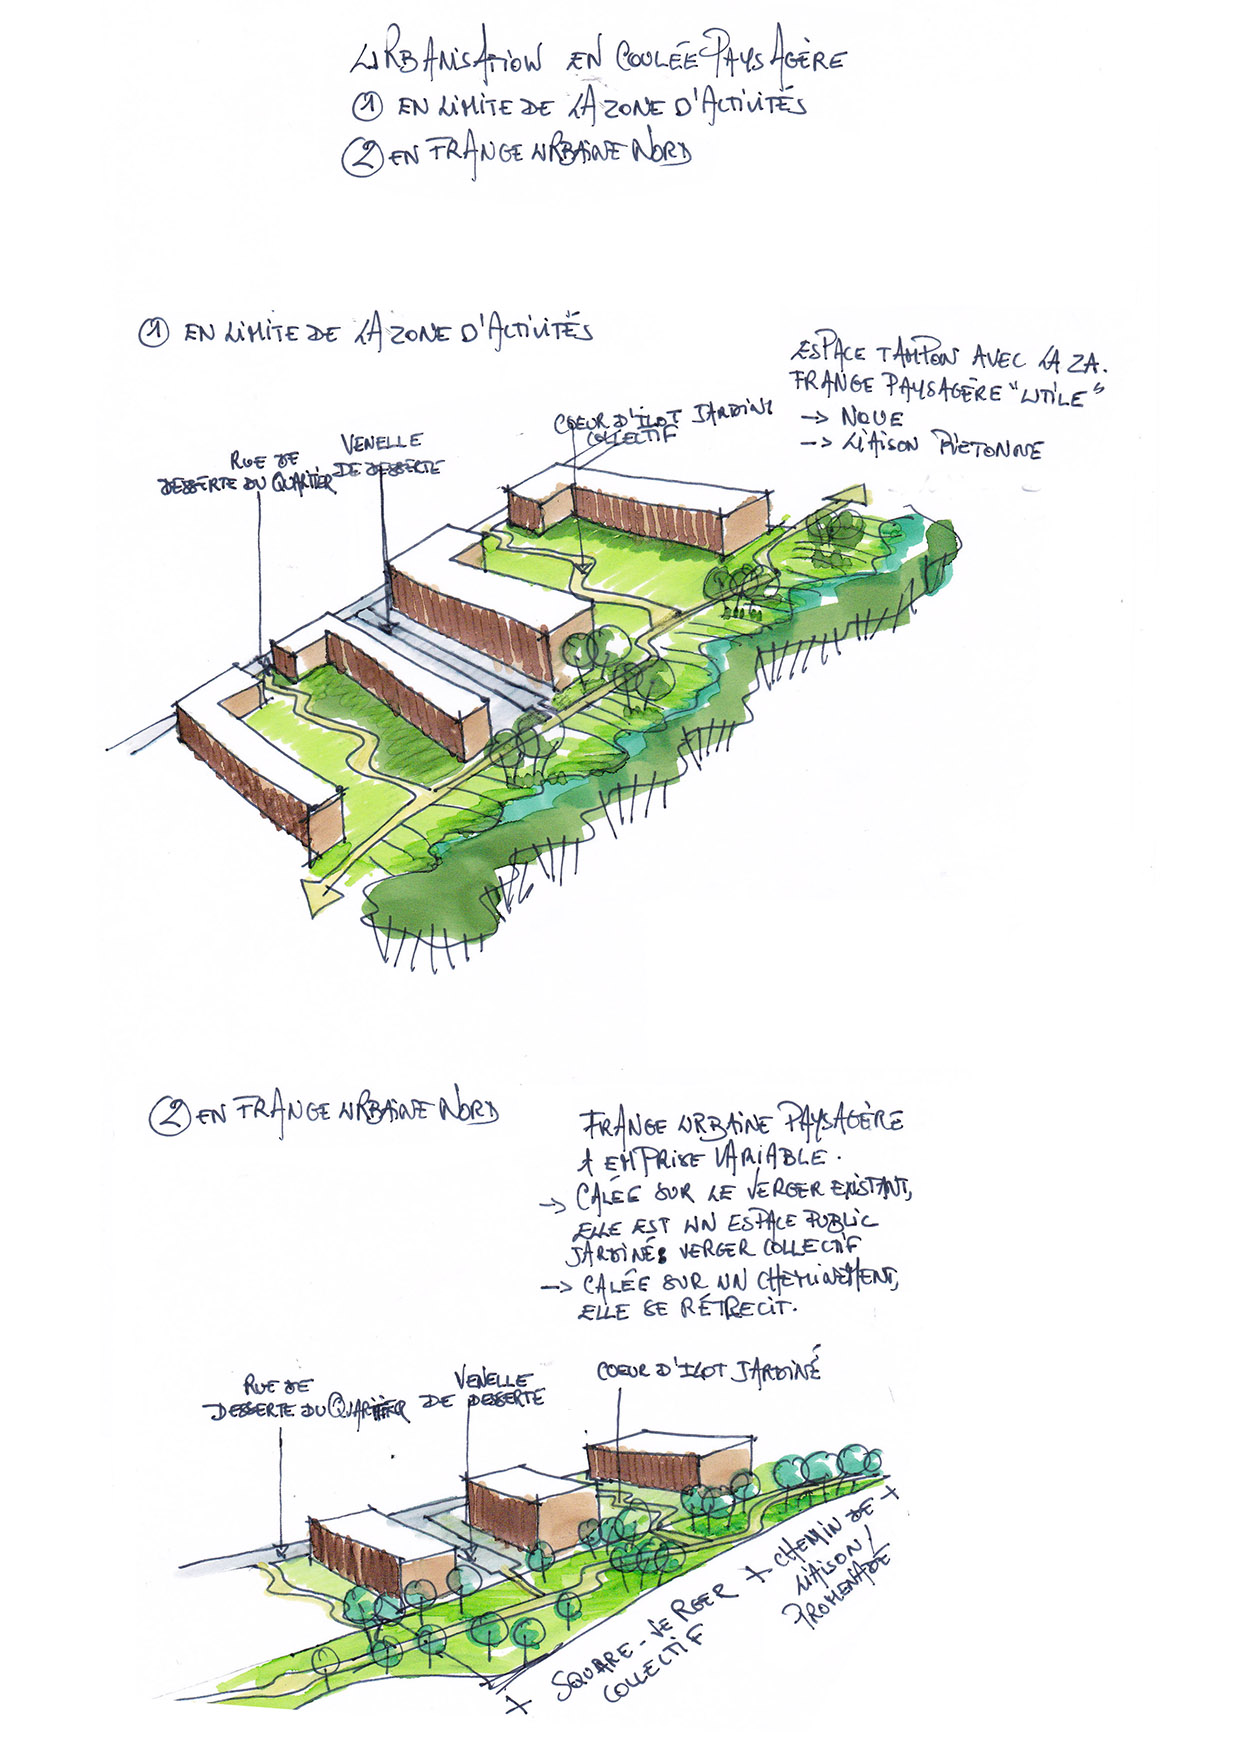 URBANISATION EN COULÉE PAYSAGÈRE
① EN LIMITE DE LA ZONE D'ACTIVITÉS
② EN FRANGE URBAINE NORD
① EN LIMITE DE LA ZONE D'ACTIVITÉS
ESPACE TAMPON AVEC LA ZA.
FRANGE PAYSAGÈRE "UTILE"
→ NOUE
→ LIAISON PIÉTONNE
COEUR D'ILOT JARDINÉ
COLLECTIF
VENELLE
DE DESSERTE
RUE DE
DESSERTE DU QUARTIER
② EN FRANGE URBAINE NORD
FRANGE URBAINE PAYSAGÈRE
A EMPRISE VARIABLE.
→ CALÉE SUR LE VERGER EXISTANT,
ELLE EST UN ESPACE PUBLIC
JARDINÉ: VERGER COLLECTIF
→ CALÉE SUR UN CHEMINEMENT,
ELLE SE RÉTRECIT.
RUE DE
DESSERTE DU QUARTIER
VENELLE
DE DESSERTE
COEUR D'ILOT JARDINÉ
SQUARE-VERGER
COLLECTIF
CHEMIN DE
LIAISON/
PROMENADE